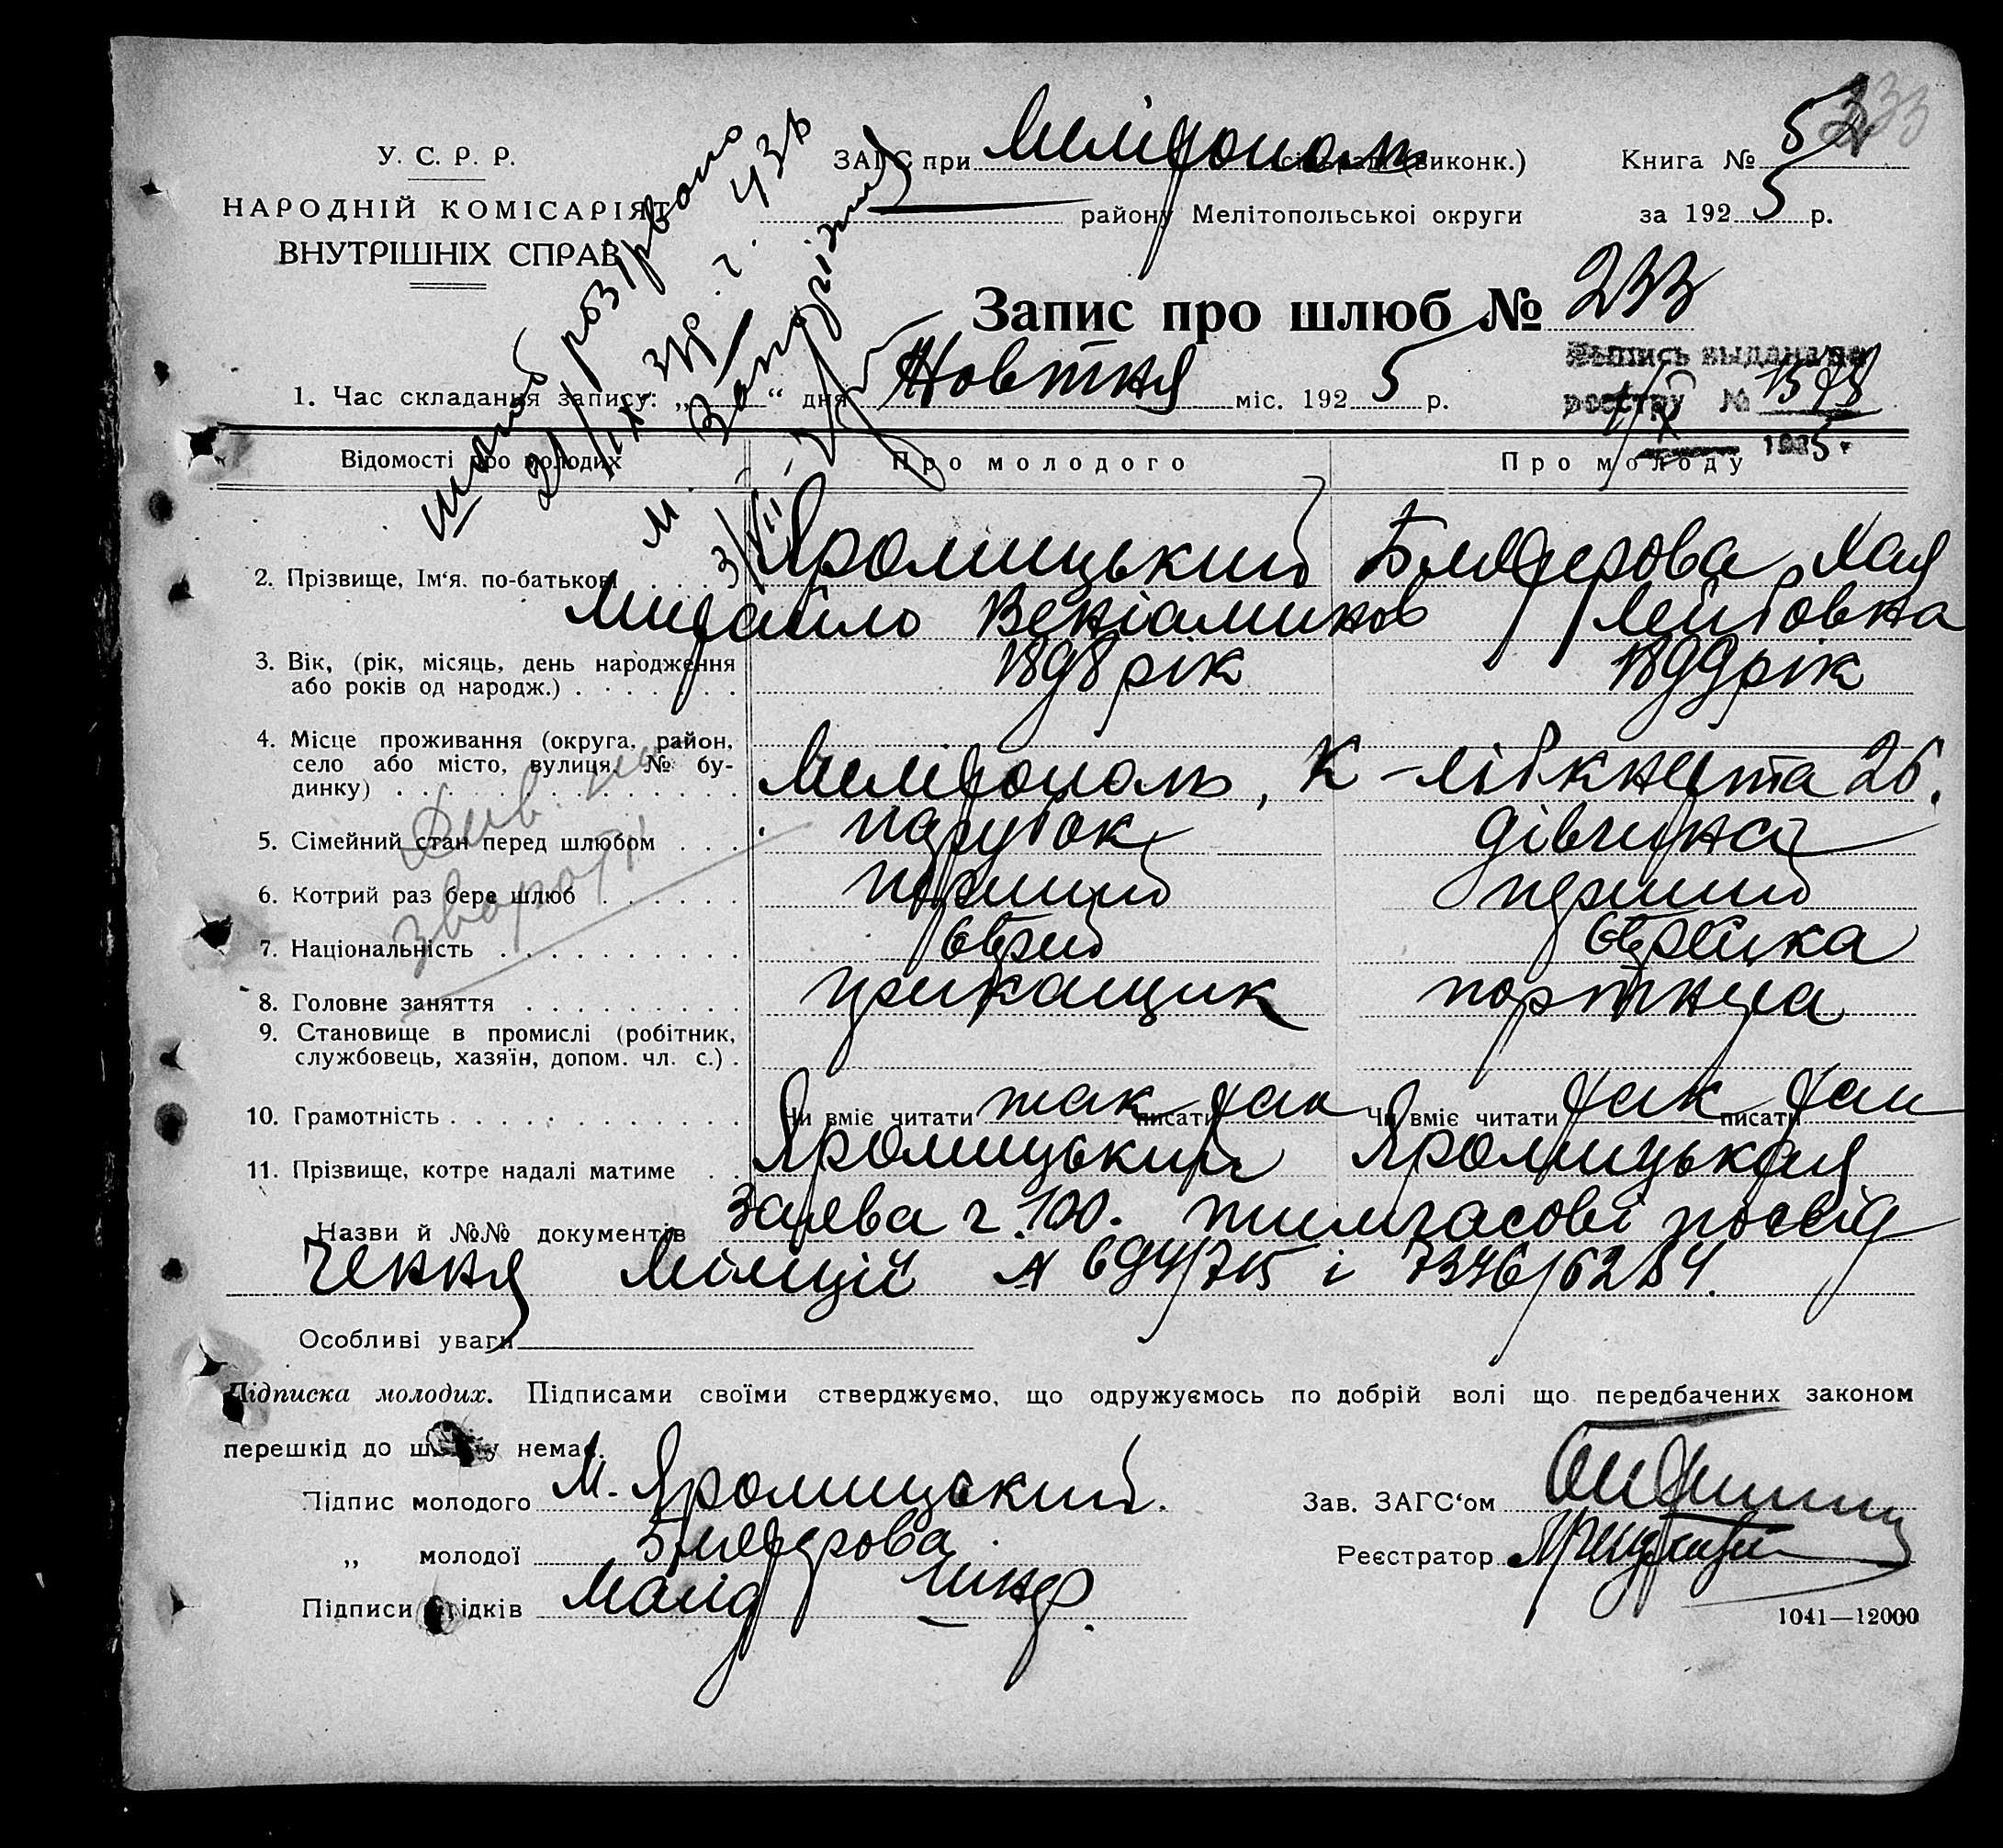 У. С. Р. Р.
НАРОДНІЙ КОМІСАРІЯТ
ВНУТРІШНІХ СПРАВ
ЗАГС при Мелітополь (виконк.)
району Мелітопольської округи
Книга № 5
за 1925 р.
233
Запис про шлюб № 233
1. Час складання запису: „ “ дня Жовтня міс. 1925 р.
Выпись выдана по
реестру №
1935 г.
шлюб розірвано
Запоріжжя
Див. на
звороті
Відомості про молодих Про молодого Про молоду
2. Прізвище, Ім‘я. по-батькові Яромицький Хая
Михайло Веніаминов Лейбовна
3. Вік, (рік, місяць, день народження 1898 рік 1899 рік
або років од народж.)
4. Місце проживання (округа, район,
село або місто, вулиця, № бу- Мелітополь, К-лібкнехта 26.
динку)
5. Сімейний стан перед шлюбом парубок дівчина
6. Котрий раз бере шлюб перший перший
7. Національність єврей єврейка
8. Головне заняття прикащик портниха
9. Становище в промислі (робітник,
службовець, хазяїн, допом. чл. с.)
10. Грамотність Чи вміє читати так писати так Чи вміє читати так писати так
11. Прізвище, котре надалі матиме Яромицький Яромицькая
Назви й №№ документів заява ч. 100. тимчасові посвід
чення міліції № 694/715 і 7346/6284.
Особливі уваги
Підписка молодих. Підписами своїми стверджуємо, що одружуємось по добрій волі що передбачених законом
перешкід до шлюбу немає.
Підпис молодого М. Яромицький.
Зав. ЗАГС‘ом
„ молодої
Реєстратор
Підписи свідків
1041—12000